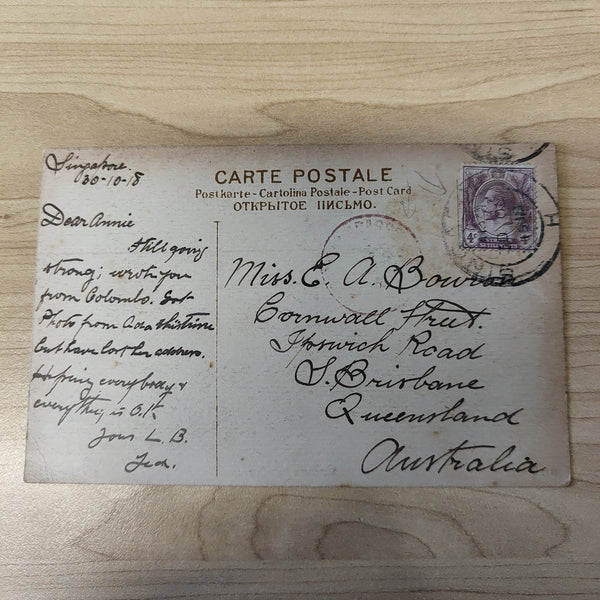 Singapore.
30-10-18
Dear Annie
Still going
strong; wrote you
from Colombo. Got
Photo from Ada this time
but have lost her address.
Hoping everybody &
everything is O.K
Yours L. B.
CARTE POSTALE
Postkarte - Cartolina Postale - Post Card
ОТКРЫТОЕ ПИСЬМО.
PASSED
4c
Miss. E. A. Bowron
Cornwall Street.
Ipswich Road
S. Brisbane
Queensland
Australia